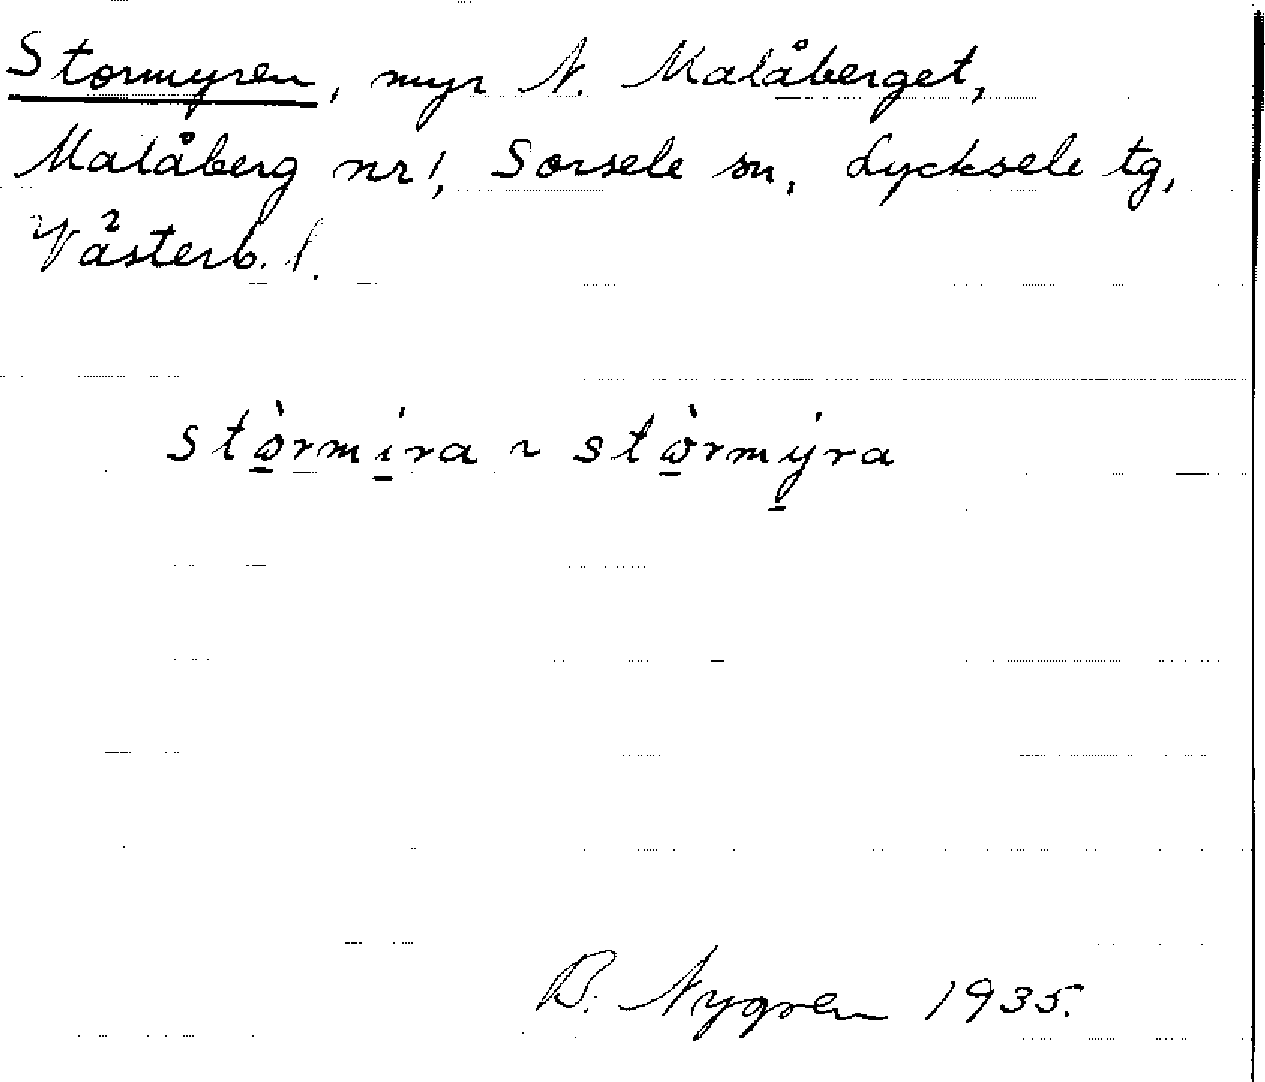 Stormyren, myr N. Malåberget,
Malåberg nr 1, Sorsele sn, Lycksele tg,
Västerb. l.
stò̱rmí̱ra ~ stò̱rmý̱ra
B. Nygren 1935.